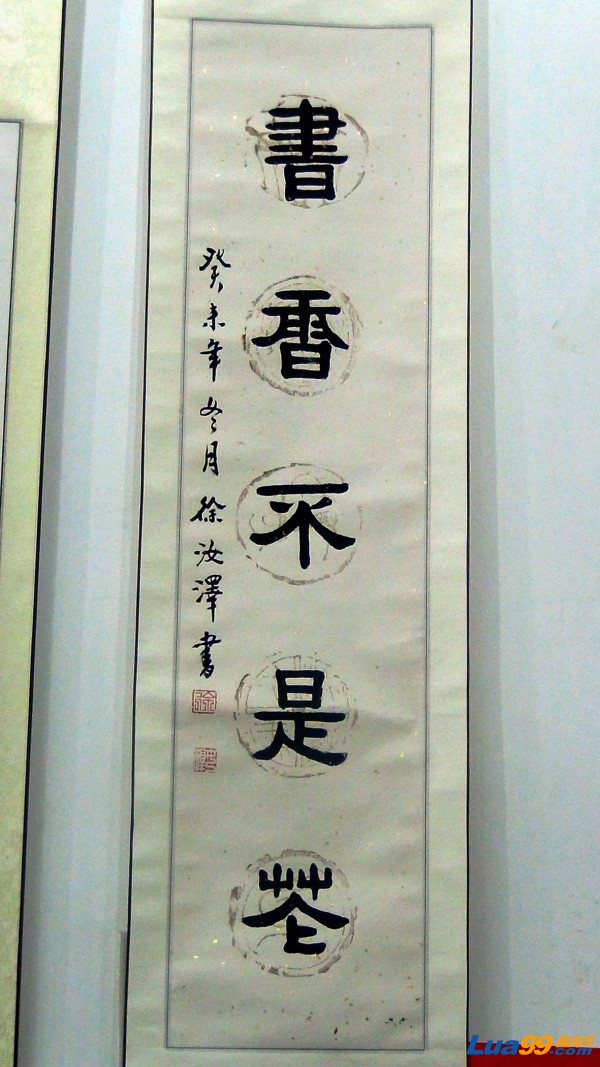 書香不是花
癸未年冬月徐汝澤書
Lua99